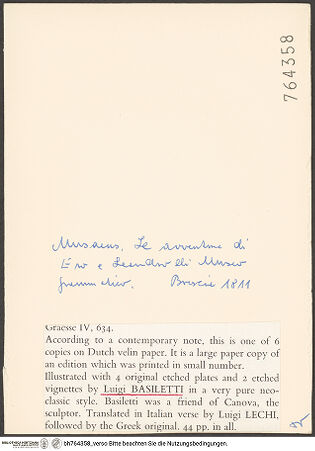 764358
Musaeus, Le avventure di
Ero e Leandro di Museo
grammatico. Brescia 1811
Graesse IV, 634.
According to a contemporary note, this is one of 6
copies on Dutch velin paper. It is a large paper copy of
an edition which was printed in small number.
Illustrated with 4 original etched plates and 2 etched
vignettes by Luigi BASILETTI in a very pure neo-
classic style. Basiletti was a friend of Canova, the
sculptor. Translated in Italian verse by Luigi LECHI,
followed by the Greek original. 44 pp. in all.
bh764358_verso Bitte beachten Sie die Nutzungsbedingungen.